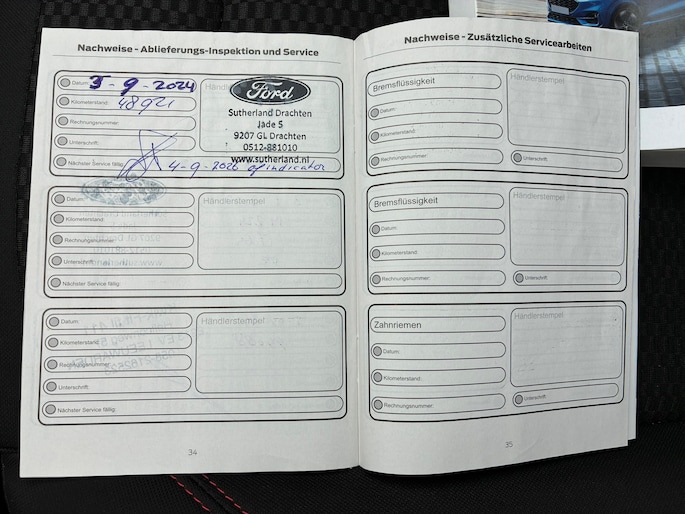 Nachweise - Ablieferungs-Inspektion und Service
Datum: 3-9-2024
Kilometerstand: 48921
Rechnungsnummer:
Unterschrift:
Nächster Service fällig: 4-9-2026 of indicator
Händlerstempel
Ford
Sutherland Drachten
Jade 5
9207 GL Drachten
0512-881010
www.sutherland.nl
Datum:
Kilometerstand:
Rechnungsnummer:
Unterschrift:
Nächster Service fällig:
Händlerstempel
Datum:
Kilometerstand:
Rechnungsnummer:
Unterschrift:
Nächster Service fällig:
Händlerstempel
34
Nachweise - Zusätzliche Servicearbeiten
Bremsflüssigkeit
Datum:
Kilometerstand:
Rechnungsnummer:
Händlerstempel
Unterschrift:
Bremsflüssigkeit
Datum:
Kilometerstand:
Rechnungsnummer:
Händlerstempel
Unterschrift:
Zahnriemen
Datum:
Kilometerstand:
Rechnungsnummer:
Händlerstempel
Unterschrift:
35